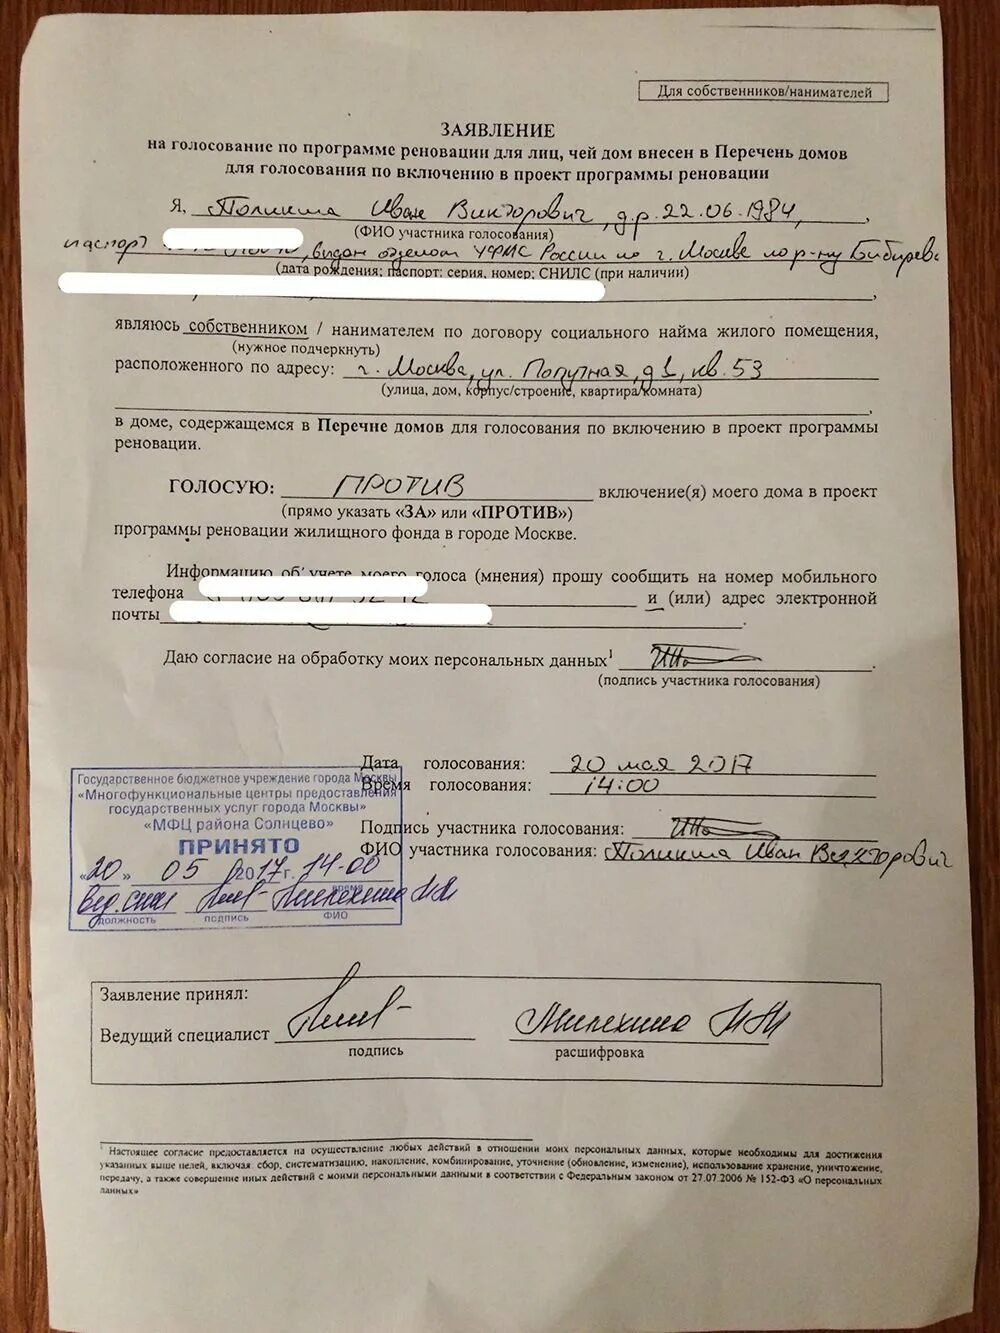 Для собственников/нанимателей
ЗАЯВЛЕНИЕ
на голосование по программе реновации для лиц, чей дом внесен в Перечень домов
для голосования по включению в проект программы реновации
Я, Иван Викторович, д.р. 22.06.1984,
(ФИО участника голосования)
паспорт выдан отделом УФМС России по г. Москве по р-ну Бибирево
(дата рождения; паспорт: серия, номер; СНИЛС (при наличии)
являюсь собственником / нанимателем по договору социального найма жилого помещения,
(нужное подчеркнуть)
расположенного по адресу: г. Москва, ул. Попутная, д 1, кв. 53
(улица, дом, корпус/строение, квартира/комната)
в доме, содержащемся в Перечне домов для голосования по включению в проект программы
реновации.
ГОЛОСУЮ: ПРОТИВ включение(я) моего дома в проект
(прямо указать «ЗА» или «ПРОТИВ»)
программы реновации жилищного фонда в городе Москве.
Информацию об учете моего голоса (мнения) прошу сообщить на номер мобильного
телефона и (или) адрес электронной
почты
Даю согласие на обработку моих персональных данных1
(подпись участника голосования)
Дата голосования: 20 мая 2017
Время голосования: 14:00
Подпись участника голосования:
ФИО участника голосования: Иван Викторович
Государственное бюджетное учреждение города Москвы
«Многофункциональные центры предоставления
государственных услуг города Москвы»
«МФЦ района Солнцево»
ПРИНЯТО
«20» 05 2017г. 14-00
время
вед. спец
должность подпись ФИО
Заявление принял:
Ведущий специалист
подпись расшифровка
1 Настоящее согласие предоставляется на осуществление любых действий в отношении моих персональных данных, которые необходимы для достижения
указанных выше целей, включая: сбор, систематизацию, накопление, комбинирование, уточнение (обновление, изменение), использование хранение, уничтожение,
передачу, а также совершение иных действий с моими персональными данными в соответствии с Федеральным законом от 27.07.2006 № 152-ФЗ «О персональных
данных»